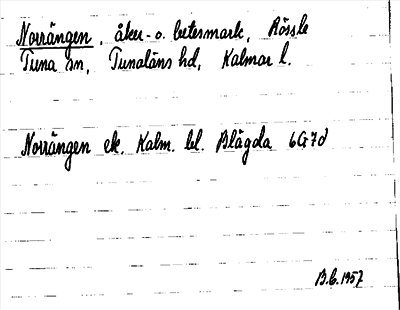 Norrängen, åker- o. betesmark, Rössle
Tuna sn, Tunaläns hd, Kalmar l.
Norrängen ek. Kalm. bl. Blågda 6G7d
B.G. 1957